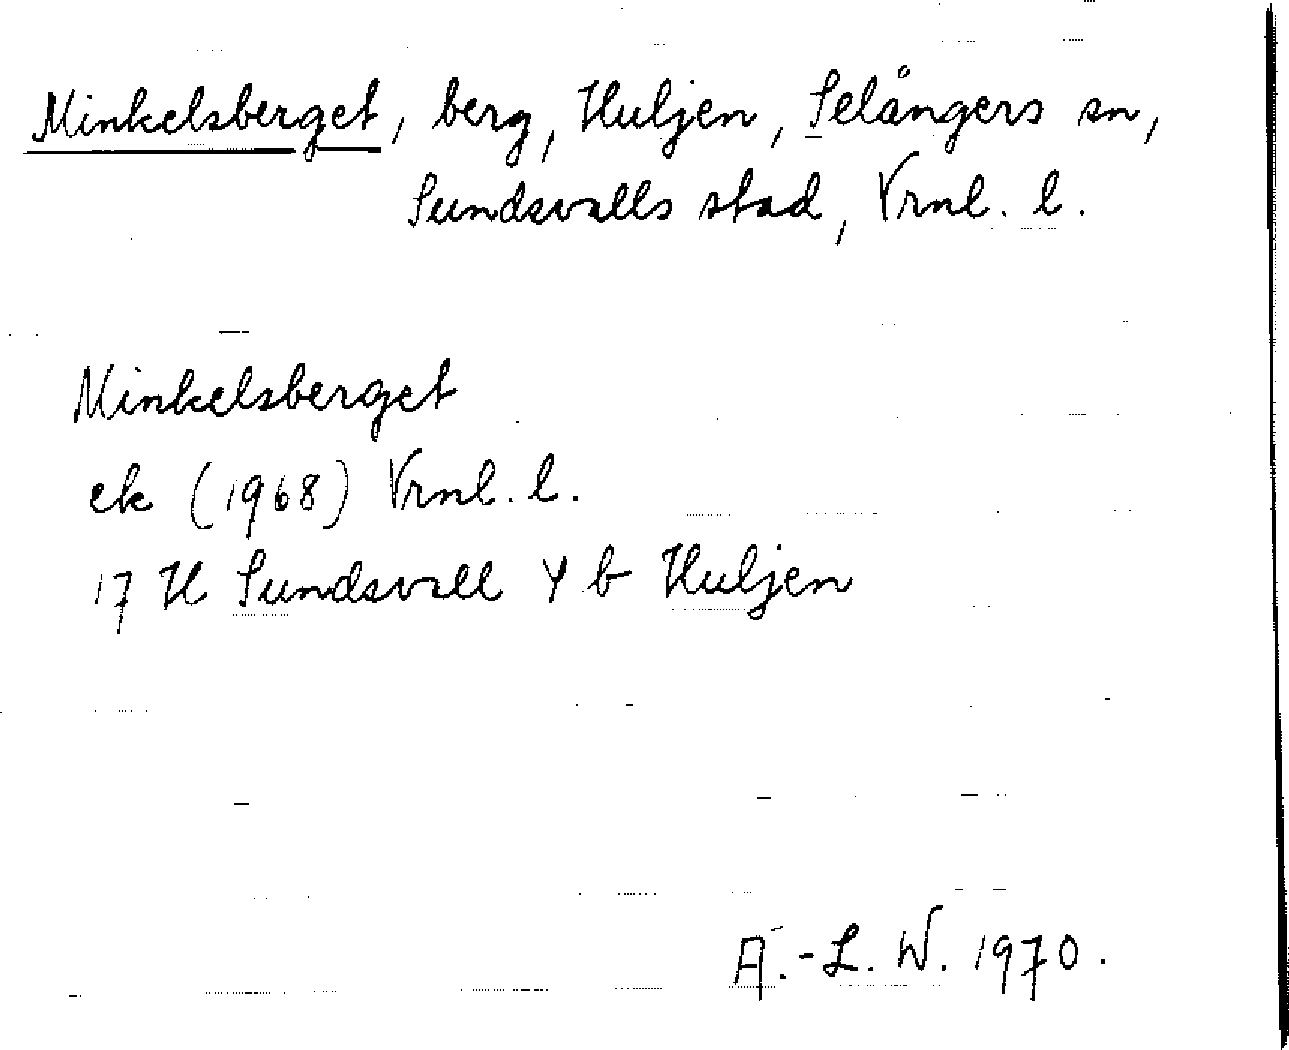 Minkelsberget, berg, Huljen, Selångers sn,
Sundsvalls stad, Vrnl. l.
Minkelsberget
ek (1968) Vrnl. l.
17 H Sundsvall Y b Huljen
A.-L. W. 1970.